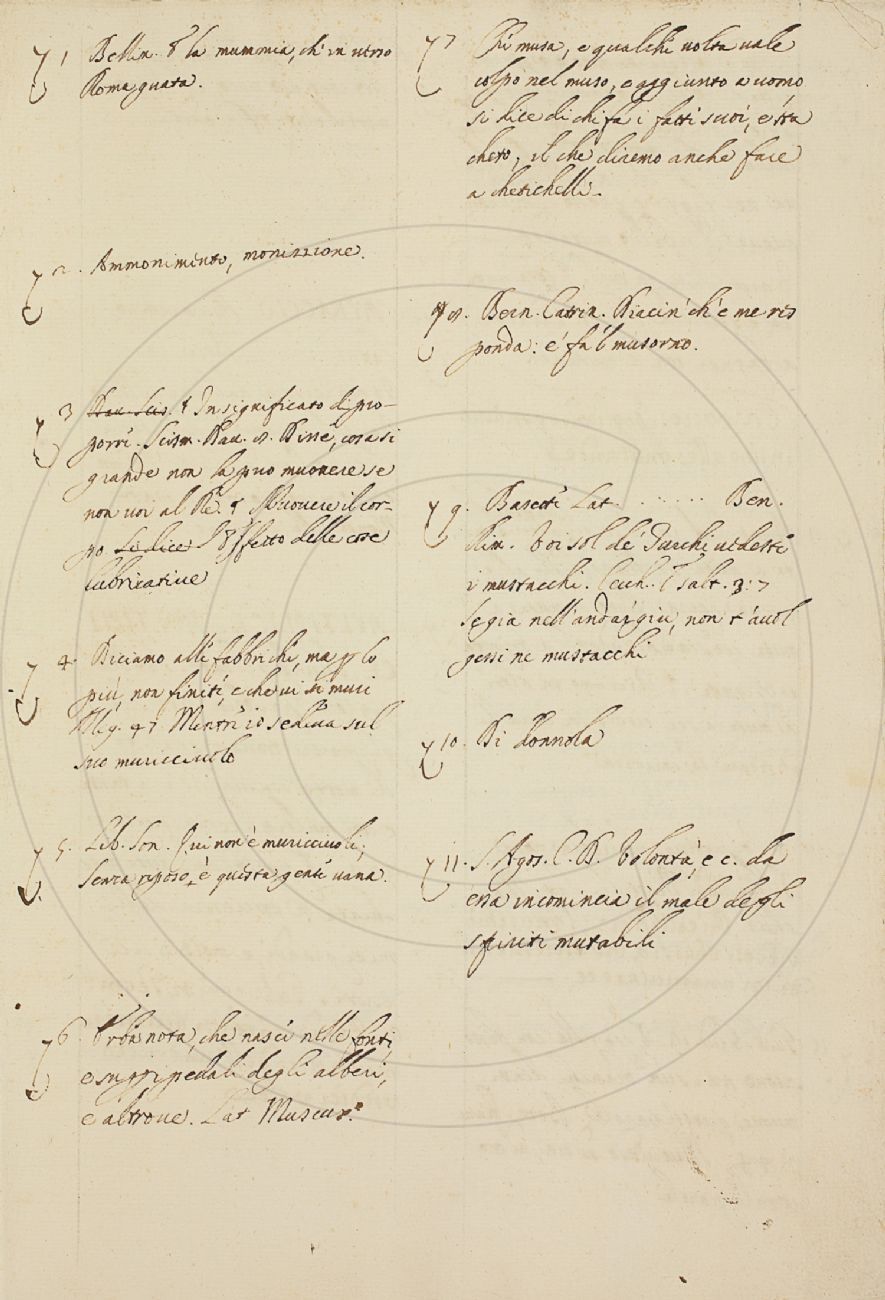 1 Bellin. E la mummia, ch' in verso
Roma guata.
2. Ammonimento, monizione.
3 In significato di pro-
porre. Scism. Dav. Dire, cosa si
grande non la può muovere se
non voi al Re. Muovere il cor-
po si dice Effetto delle cose
lubricative
4. Diciamo alle fabbriche, ma p lo
più, non finite, e che vi si muri
Alleg. 47. Mentre io sedeva sul
suo muricciuolo
5. Lib. Son. Qui non è muricciuoli,
senza riposo, è questa gente vana.
6 Erba nota, che nasce nelle fonti
e su pe' pedali degli alberi,
e altrove. Lat Muscus.
7 Chi musa, e qualche volta vale
colpo nel muso, e aggiunto a uomo
si dice di chi fa i fatti suoi, e sta
cheto, il che diremo anche fare
a chetichelli.
8. Bern. Catrin. Diacin' ch' e me ris
ponda: e' fa 'l musorno.
9. Basette Lat. . . . . . . Ben.
Rim. Voi sol de' Turchi vedeste
i mustacchi. Cecch. Esalt. 3: 7
Segia nell'andar giù, non t' avol
gessi ne mustacchi
10. Di donnola
11. S. Agos. C. D. Volontà, e c. da
essa incomincia il male degli
spiriti mutabili